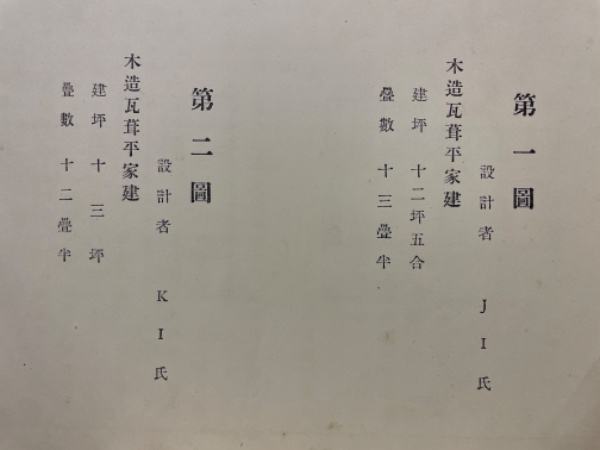 第一圖
設計者 JI氏
木造瓦葺平家建
建坪 十二坪五合
疊數 十三疊半
第二圖
設計者 KI氏
木造瓦葺平家建
建坪 十三坪
疊數 十二疊半